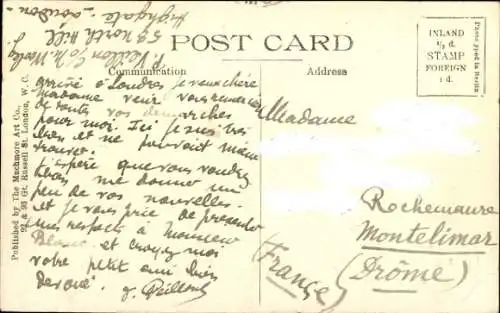 J. Veillon C/o Mr. Morley
59 North Hill
Highgate - London -
POST CARD
Communication
Address
INLAND
½ d.
STAMP
FOREIGN
1 d.
Published by The Machmore Art Co.,
92 & 93 Gt. Russell St. London, W. C.
arrivé à Londres je veux chère
Madame venir vous remercier
de toutes vos démarches
pour moi. Ici, je suis très
bien et ne pouvait mieux
trouver.
J'espère que vous voudrez
bien me donner un
peu de vos nouvelles.
et je vous prie de présenter
mes respects à Monsieur
Blanc et croyez moi
votre petit ami bien
dévoué.
J. Veillon
Madame
Rochemaure
Montelimar
(Drôme)
(France)